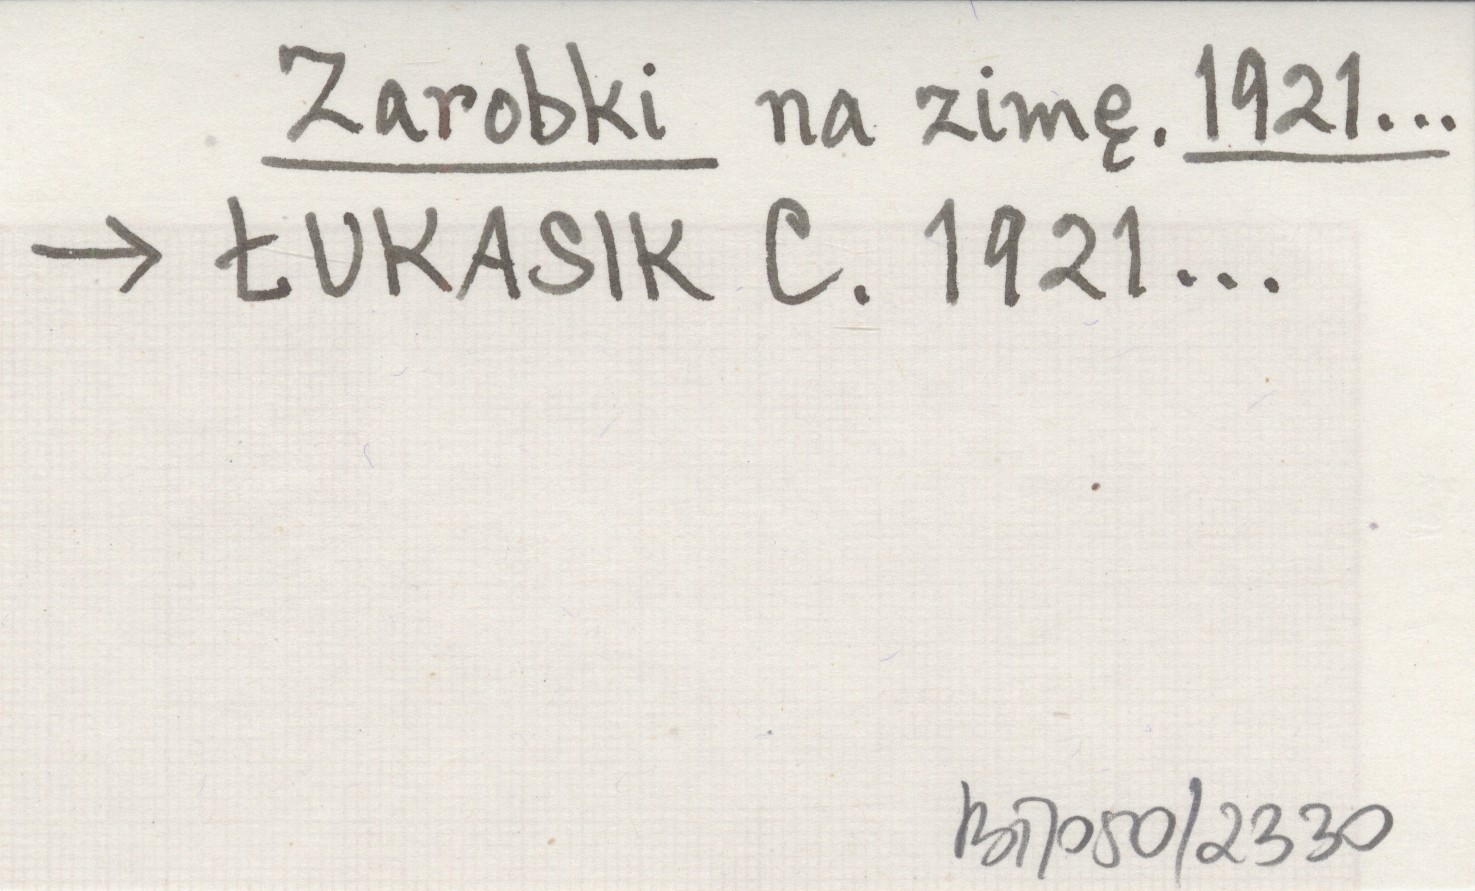 Zarobki na zimę. 1921...
→ ŁUKASIK C. 1921...
Bi7050/2330